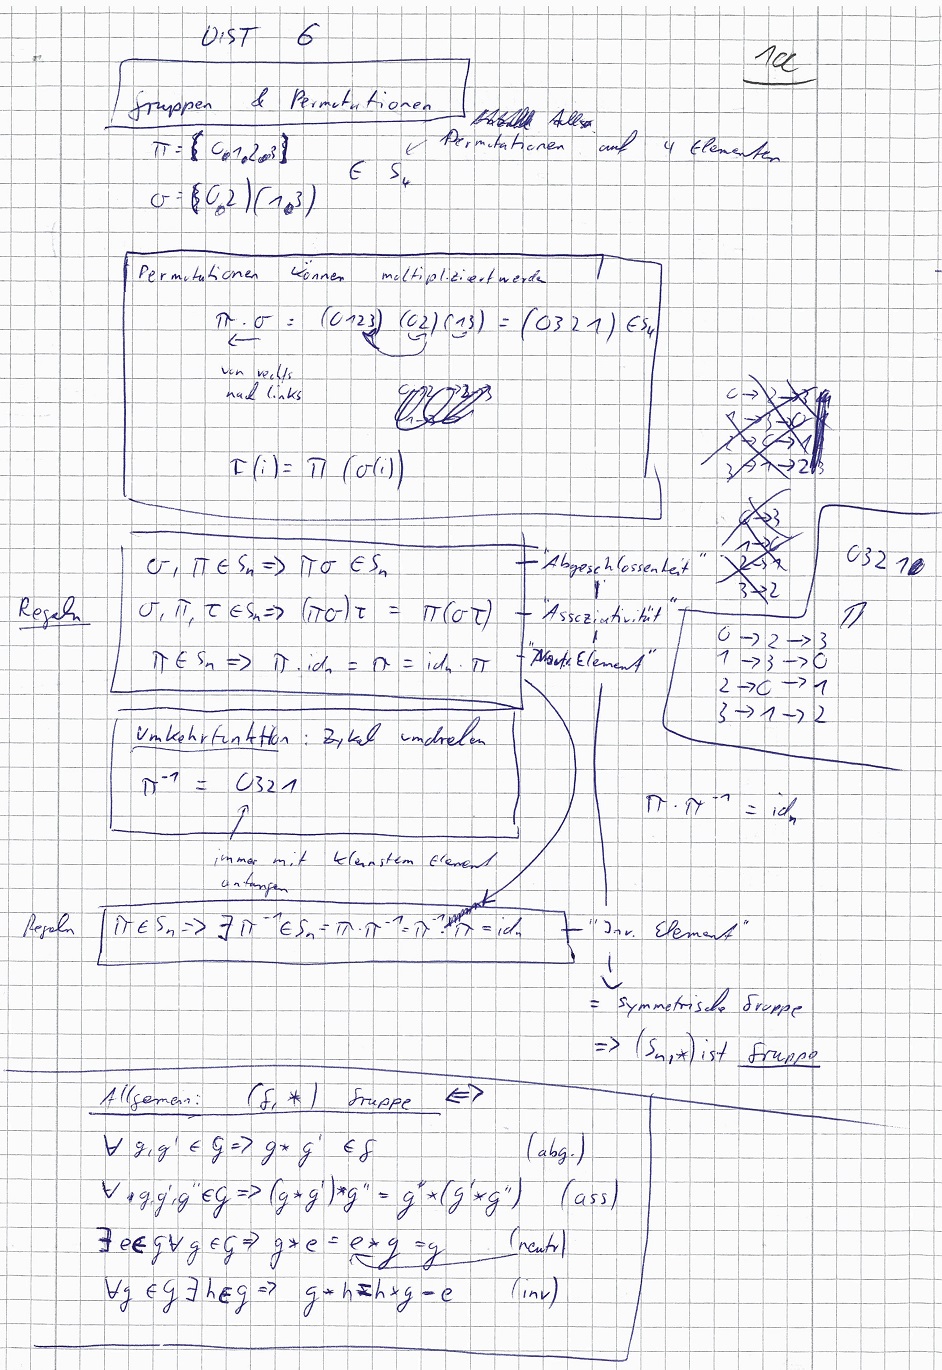 DIST 6
1a
Gruppen & Permutationen
Permutationen auf 4 Elementen
π = { 0,1,2,3}
∈ S₄
σ = (0,2)(1,3)
Permutationen können multipliziert werden
π · σ = (0123) (02)(13) = (0321) ∈ S₄
von rechts
nach links
τ(i) = π (σ(i))
0 → 2 → 3
1 → 3 → 0
2 → 0 → 1
3 → 1 → 2
0 → 3
1 → 0
2 → 1
3 → 2
0321
π
0 → 2 → 3
1 → 3 → 0
2 → 0 → 1
3 → 1 → 2
Regeln
σ, π ∈ Sₙ => πσ ∈ Sₙ "Abgeschlossenheit"
σ, π, τ ∈ Sₙ => (πσ)τ = π(στ) "Assoziativität"
π ∈ Sₙ => π · idₙ = π = idₙ · π "Neutr. Element"
Umkehrfunktion: Zykel umdrehen
π⁻¹ = 0321
π · π⁻¹ = idₙ
immer mit kleinstem Element
anfangen
Regeln π ∈ Sₙ => ∃ π⁻¹ ∈ Sₙ = π · π⁻¹ = π⁻¹ · π = idₙ "Inv. Element"
= symmetrische Gruppe
=> (Sₙ, *) ist Gruppe
Allgemein: (G, *) Gruppe <=>
∀ g, g' ∈ G => g * g' ∈ G (abg.)
∀ g, g', g'' ∈ G => (g * g') * g'' = g * (g' * g'') (ass)
∃ e ∈ G ∀ g ∈ G => g * e = e * g = g (neutr)
∀ g ∈ G ∃ h ∈ G => g * h = h * g = e (inv)